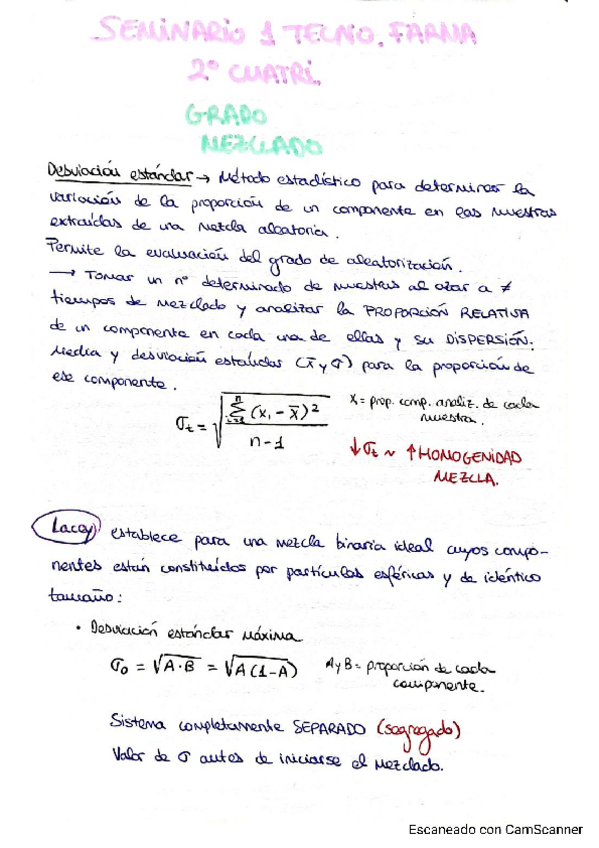 SEMINARIO 1 TECNO. FARMA
2º CUATRI.
GRADO
MEZCLADO
Desviación estándar → Método estadístico para determinar la
variación de la proporción de un componente en las muestras
extraídas de una mezcla aleatoria.
Permite la evaluación del grado de aleatorización.
→ Tomar un nº determinado de muestras al azar a ≠
tiempos de mezclado y analizar la PROPORCIÓN RELATIVA
de un componente en cada una de ellas y su DISPERSIÓN.
Media y desviación estándar (x̄ y σ) para la proporción de
ese componente.
σt = √(Σ(i=1, n) (xi - x̄)² / (n-1))
X = prop. comp. analiz. de cada
muestra.
↓σt ~ ↑HOMOGENIDAD
MEZCLA.
Lacey establece para una mezcla binaria ideal cuyos compo-
nentes están constituidos por partículas esféricas y de idéntico
tamaño:
• Desviación estándar máxima
σ0 = √A·B = √A(1-A)
A y B = proporción de cada
componente.
Sistema completamente SEPARADO (segregado)
Valor de σ antes de iniciarse el mezclado.
Escaneado con CamScanner